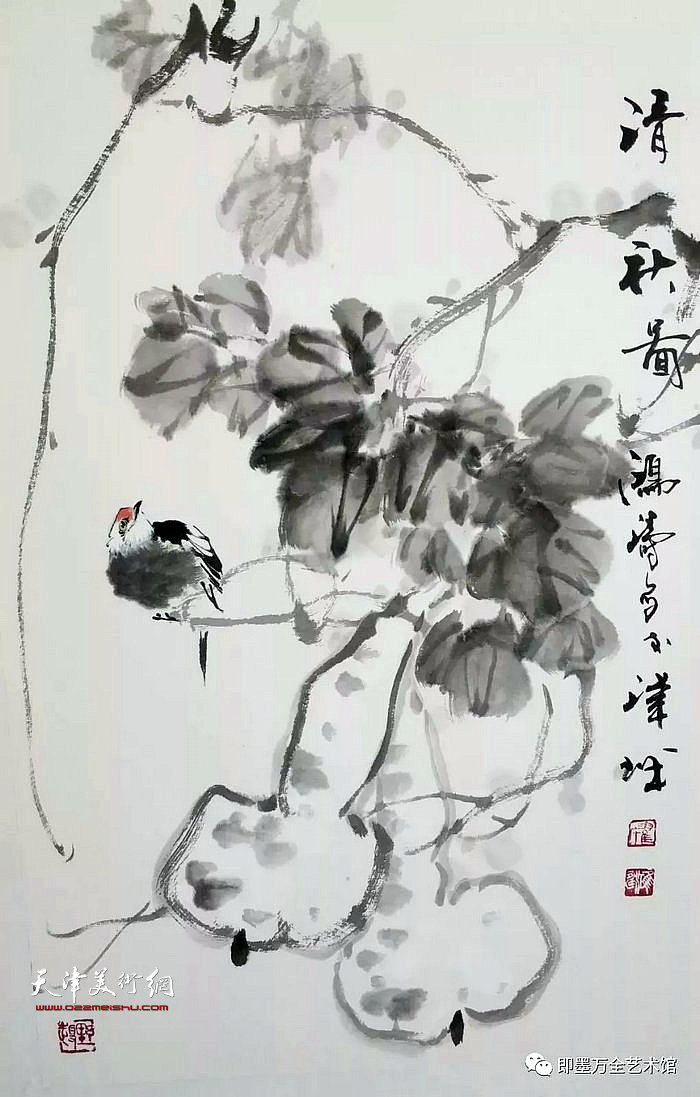 清秋啚
鴻濤写于津城
天津美術網
www.022meishu.com
即墨万全艺术馆